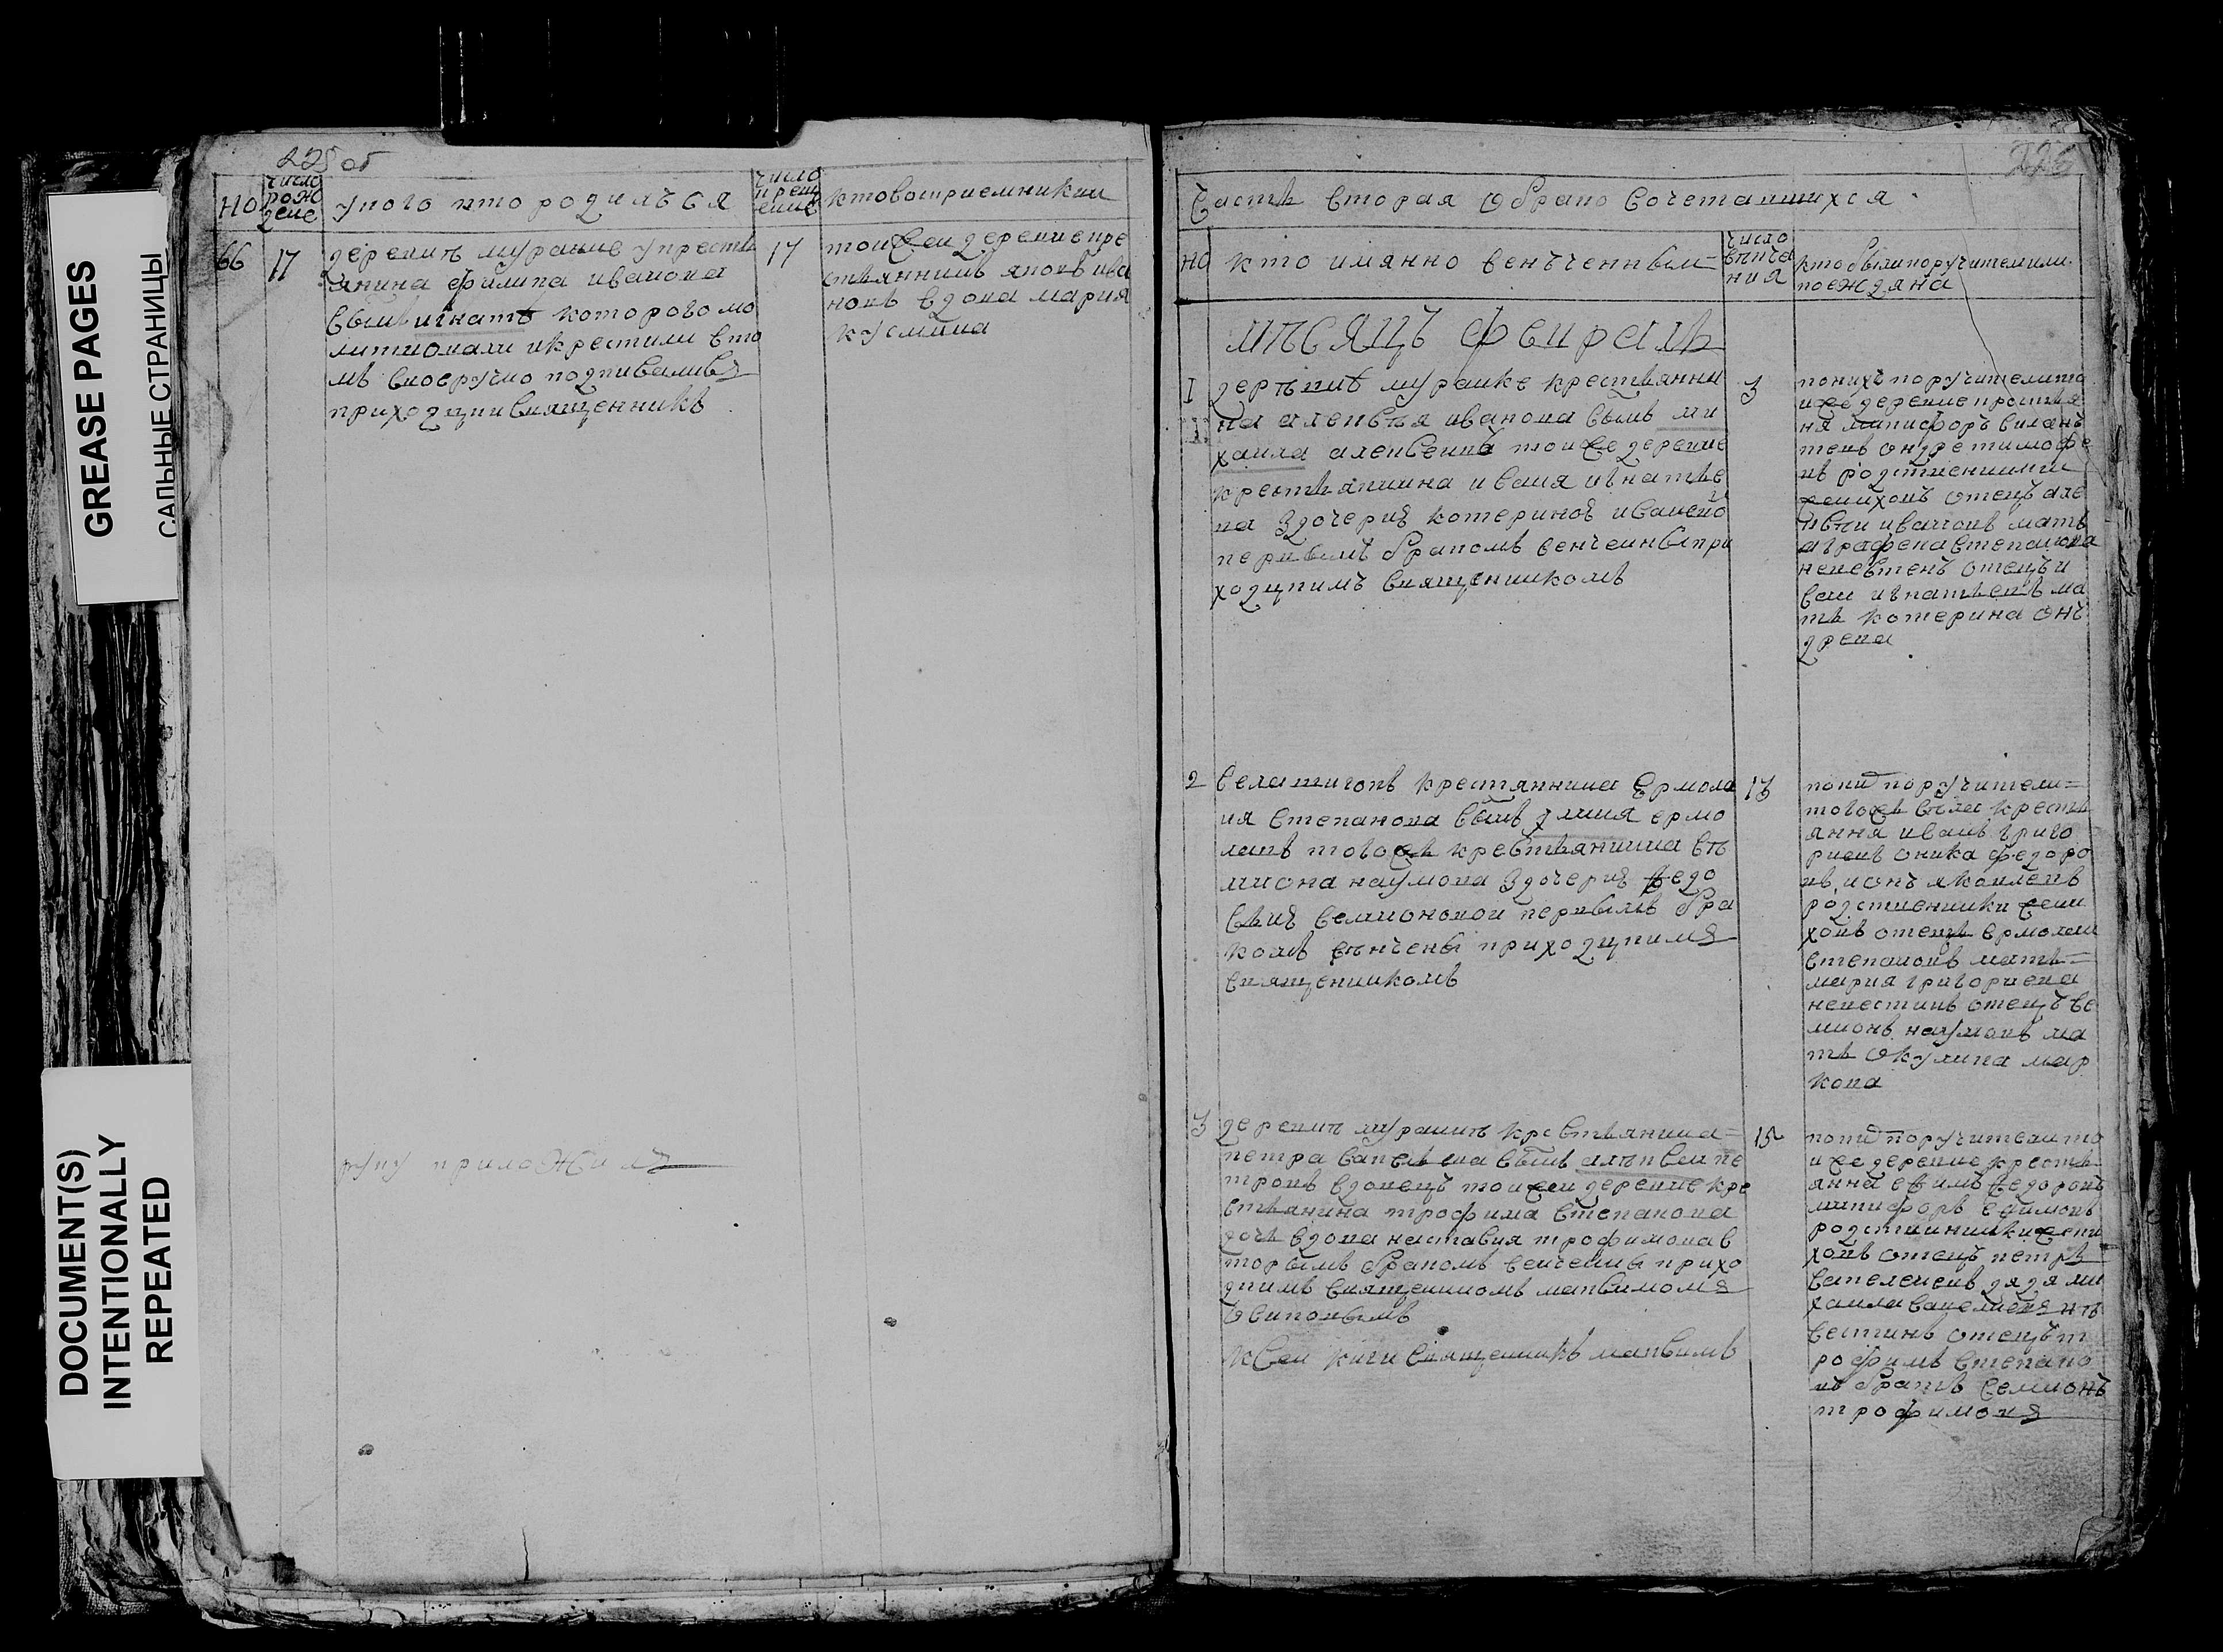 GREASE PAGES
САЛЬНЫЕ СТРАНИЦЫ
DOCUMENT(S)
INTENTIONALLY
REPEATED
225 об
но
число
рож
дение
у кого кто родилъся
число
крещ
ение
кто восприемникаи
66 17
деревнѣ муравие у кресть
янина филипа иванова
сынъ игнатъ которого мо
литвовали и крестили в то
мъ своеручно подписалъся
приходцкии священникъ
17
тоижеи деревне кре
стьяниинъ яковъ ива
новъ вдова мария
кусмина
руку приложилъ
226
Часть вторая о брако сочетавшихся
но
кто имянно венъченны
число
венъча
ния
кто были поручители или
поежджяна
мѣсяцъ февраль
1
деревнѣ муравке крестьяни
на алексѣя иванова сынъ ми
хаила алексеивъ тоиже деревне
крестьянина исаия игнатье
ва з дочерию котериною исаевои
первымъ бракомъ венчены при
ходцкимъ священникомъ
3
по нихъ поручители то
иже деревне крестья
ня никифоръ силанъ
тевъ ондре тимофе
въ родственники
женихомъ отецъ але
ксѣи ивановъ мать
аграфена степанова
невестенъ отецъ и
саи игнатьевъ ма
ть котерина онъ
древа
2
села шигонъ крестянина ермола
ия степанова сынъ улиия ермо
лаивъ тогожъ крестьянина сѣ
миона наумова з дочерию федо
сьию семионовои первымъ бра
комъ сѣнчены приходцкимъ
священникомъ
13
по ни поручители
тогожъ села кресть
яння иванъ григо
риевъ оника федоро
въ ионъ яковлевъ
родственники жени
ховъ отецъ ермолаи
степановъ мать
мария григориева
невестинъ отецъ се
мионъ наумовъ ма
ть окулина мар
кова
3
деревнѣ муравиѣ крестьянина
петра савельева сынъ алѣксеи пе
тровъ вдовецъ тоижеи деревне кре
стьянина трофима степанова
дочь вдова настасия трофимова в
торымъ бракомъ венчены прихо
дцкимъ священникомъ максимомъ
осиповымъ
к сеи книги священникъ максимъ
15
по ни поручители то
иже деревне кресть
янна ефимъ федоровъ
никифоръ ефимовъ
родственники жени
ховъ отецъ петръ
савелеевъ дядя ми
хаила савелиевъ нѣ
вестинъ отецъ т
рофимъ степано
въ братъ семионъ
трофимовъ